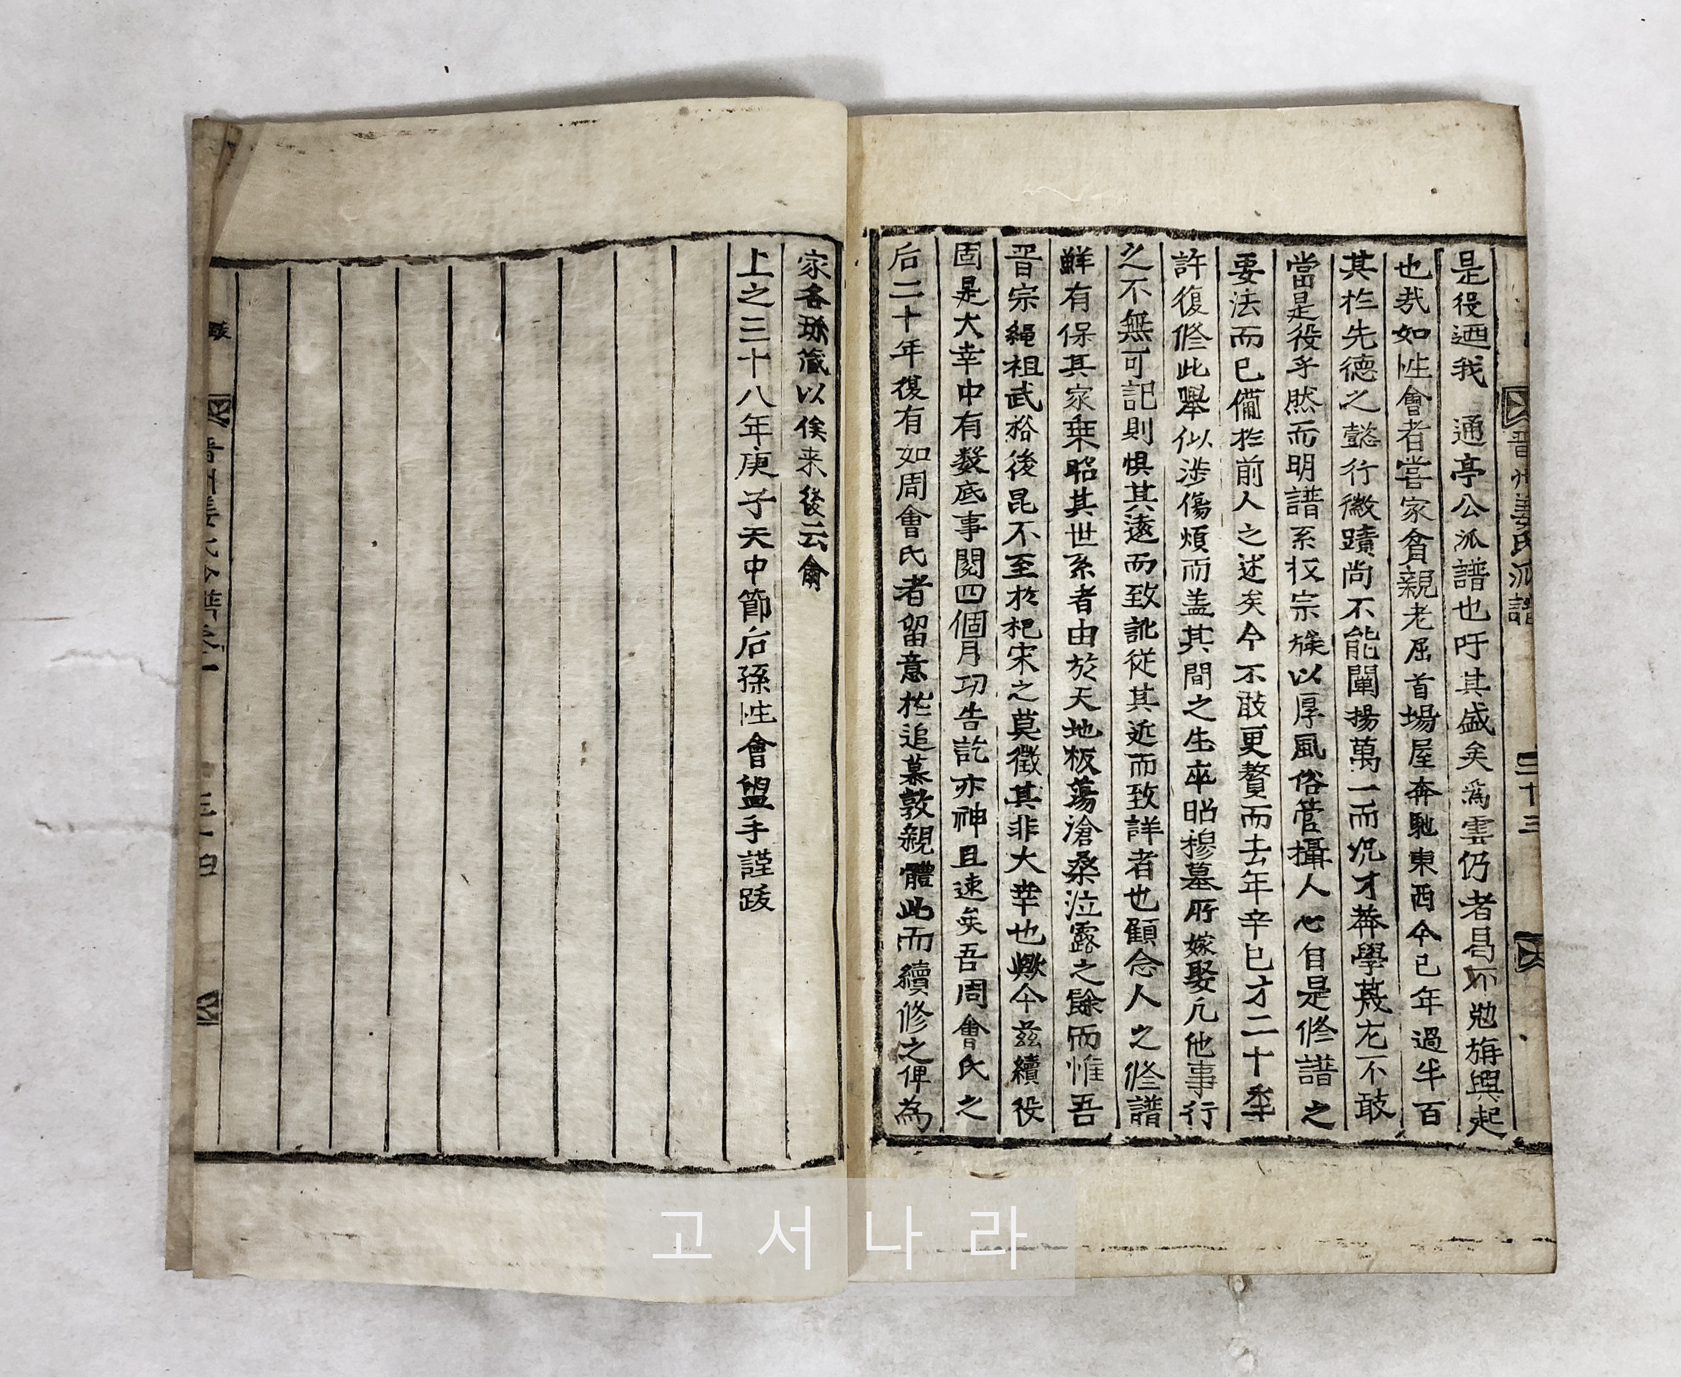 晋州姜氏派譜
二十三
是役迺我 通亭公派譜也吁其盛矣爲雲仍者曷不勉旃興起
也哉如性會者嘗家貧親老屈首場屋奔馳東西今已年過半百
其於先德之懿行徽蹟尚不能闡揚萬一而况才莾學蔑尤不敢
當是役乎然而明譜系収宗族以厚風俗管攝人心自是修譜之
要法而已備於前人之述矣今不敢更贅而去年辛巳才二十季
許復修此舉似涉傷煩而盖其間之生卒昭穆墓所嫁娶凡他事行
之不無可記則惧其遠而致訛従其近而致詳者也顧念人之修譜
鮮有保其家乗昭其世系者由於天地板蕩滄桑泣露之餘而惟吾
晋宗繩祖武裕後昆不至於杞宋之莫徵其非大幸也歟今兹續役
固是大幸中有数底事閱四個月功告訖亦神且速矣吾周會氏之
后二十年復有如周會氏者留意於追慕敦親體此而續修之俾為
家各珎蔵以俟来後云爾
上之三十八年庚子天中節后孫性會盥手謹跋
跋
晋州姜氏派譜卷一
二十四
고서나라